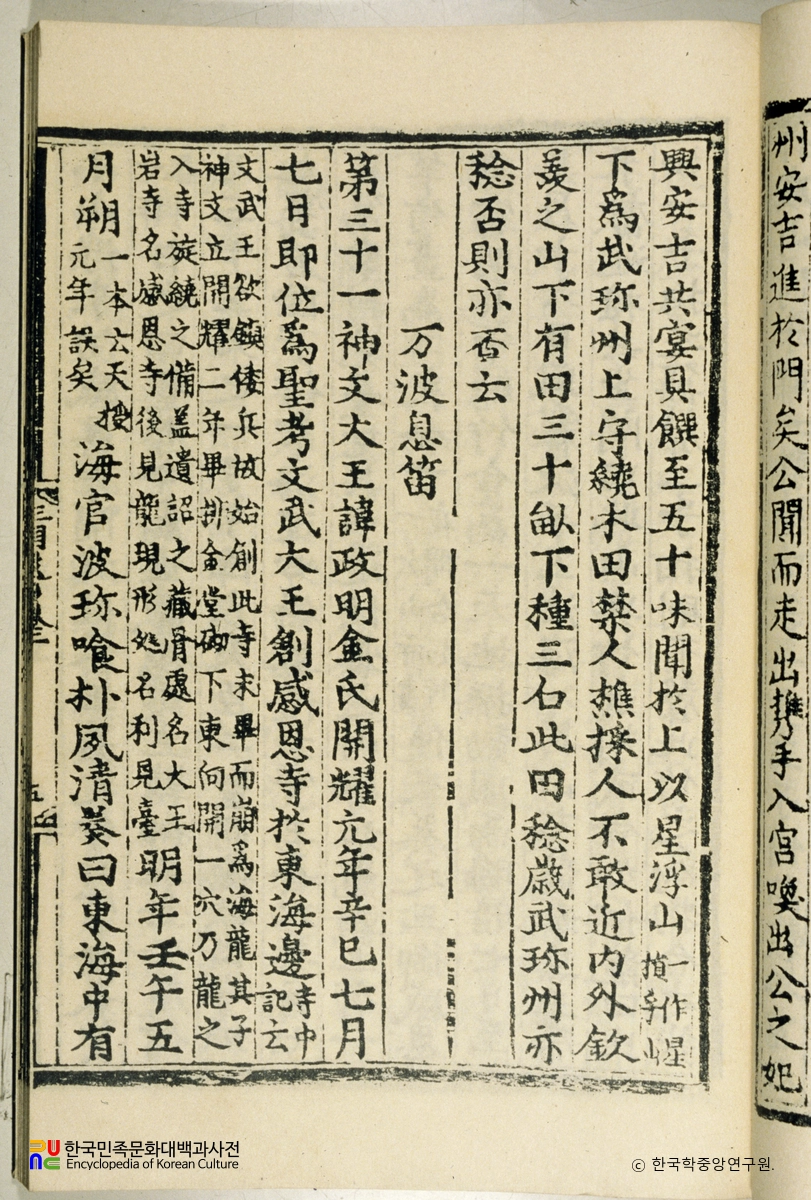 州安吉進於門矣公聞而走出携手入宮喚出公之妃
興安吉共宴具饌至五十味聞於上以星浮山一作星損乎山
下爲武珍州上守繞木田禁人樵採人不敢近內外欽
羨之山下有田三十畝下種三石此田稔歲武珍州亦
稔否則亦否云
万波息笛
第三十一神文大王諱政明金氏開耀元年辛巳七月
七日即位爲聖考文武大王創感恩寺於東海邊寺中記云
文武王欲鎮倭兵故始創此寺未畢而崩爲海龍其子
神文立開耀二年畢排金堂砌下東向開一穴乃龍之
入寺旋繞之備盖遺詔之藏骨處名大王
岩寺名感恩寺後見龍現形處名利見臺明年壬午五
月朔一本云天授元年誤矣海官波珍喰朴夙清奏曰東海中有
五
한국민족문화대백과사전
Encyclopedia of Korean Culture
ⓒ 한국학중앙연구원.